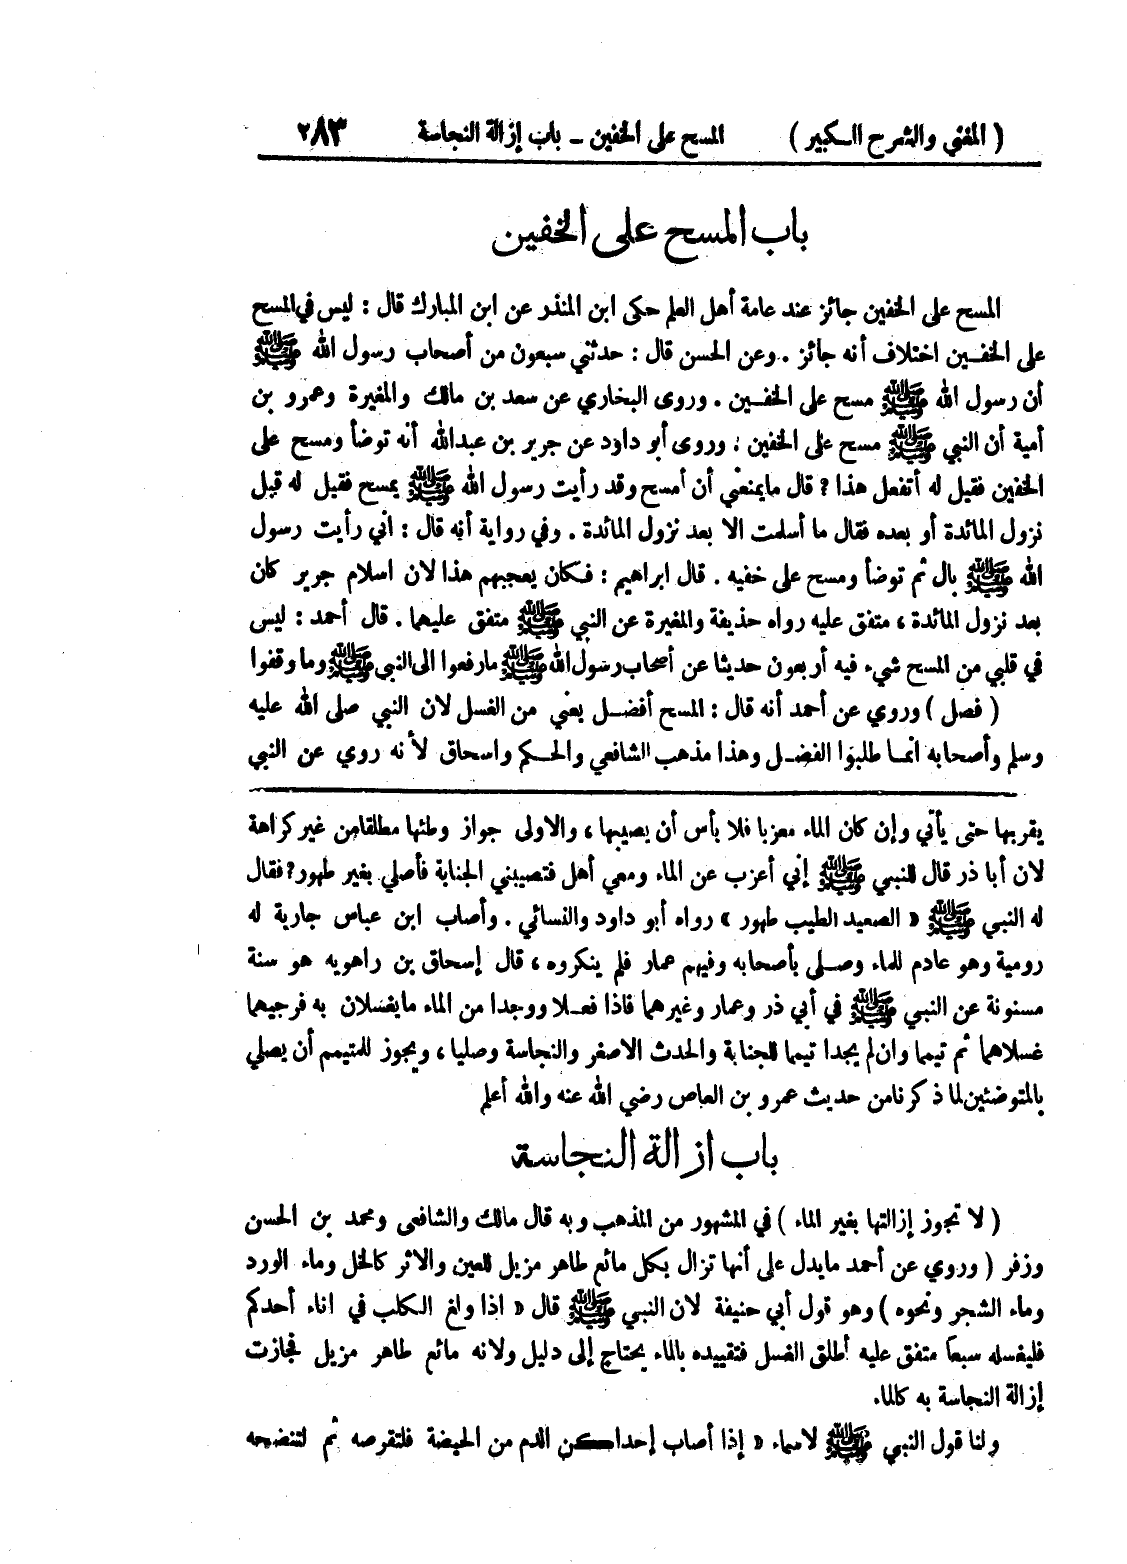 ( المغني والشرح الكبير ) المسح على الخفين ــ باب إزالة النجاسة ٢٨٣
باب المسح على الخفين
المسح على الخفين جائز عند عامة أهل العلم حكى ابن المنذر عن ابن المبارك قال : ليس في المسح
على الخفين اختلاف أنه جائز . وعن الحسن قال : حدثني سبعون من أصحاب رسول الله ﷺ
أن رسول الله ﷺ مسح على الخفين . وروى البخاري عن سعد بن مالك والمغيرة وعمرو بن
أمية أن النبي ﷺ مسح على الخفين . وروى أبو داود عن جرير بن عبدالله أنه توضأ ومسح على
الخفين فقيل له أتفعل هذا ؟ قال مايمنعني أن أمسح وقد رأيت رسول الله ﷺ يمسح فقيل له قبل
نزول المائدة أو بعده فقال ما أسلمت الا بعد نزول المائدة . وفي رواية أنه قال : اني رأيت رسول
الله ﷺ بال ثم توضأ ومسح على خفيه . قال ابراهيم : فكان يعجبهم هذا لان اسلام جرير كان
بعد نزول المائدة ، متفق عليه رواه حذيفة والمغيرة عن النبي ﷺ متفق عليهما . قال أحمد : ليس
في قلبي من المسح شيء فيه أربعون حديثا عن أصحاب رسول الله ﷺ مارفعوا الى النبي ﷺ وما وقفوا
( فصل ) وروي عن أحمد أنه قال : المسح أفضل يعني من الغسل لان النبي صلى الله عليه
وسلم وأصحابه انما طلبوا الفضل وهذا مذهب الشافعي والحكم واسحاق لأنه روي عن النبي
يقربها حتى يأتي وإن كان الماء معزبا فلا بأس أن يصيبها ، والاولى جواز وطئها مطلقا من غير كراهة
لان أبا ذر قال للنبي ﷺ إني أعزب عن الماء ومعي أهل فتصيبني الجنابة فأصلي بغير طهور؟ فقال
له النبي ﷺ « الصعيد الطيب طهور » رواه أبو داود والنسائي . وأصاب ابن عباس جارية له
رومية وهو عادم للماء وصلى بأصحابه وفيهم عمار فلم ينكروه ، قال إسحاق بن راهويه هو سنة
مسنونة عن النبي ﷺ في أبي ذر وعمار وغيرهما فاذا فعلا ووجدا من الماء مايغسلان به فرجيهما
غسلاهما ثم تيمما وان لم يجدا تيمما للجنابة والحدث الاصغر والنجاسة وصليا ، ويجوز للمتيمم أن يصلي
بالمتوضئين لما ذكرنا من حديث عمرو بن العاص رضي الله عنه والله أعلم
باب ازالة النجاسة
( لا تجوز إزالتها بغير الماء ) في المشهور من المذهب وبه قال مالك والشافعى ومحمد بن الحسن
وزفر ( وروي عن أحمد مايدل على أنها تزال بكل مائع طاهر مزيل للعين والاثر كالخل وماء الورد
وماء الشجر ونحوه ) وهو قول أبي حنيفة لان النبي ﷺ قال « اذا ولغ الكلب في اناء أحدكم
فليغسله سبعا متفق عليه أطلق الغسل فتقييده بالماء يحتاج إلى دليل ولانه مائع طاهر مزيل فجازت
إزالة النجاسة به كالماء.
ولنا قول النبي ﷺ لاسماء « إذا أصاب إحداكن الدم من الحيضة فلتقرصه ثم لتنضحه